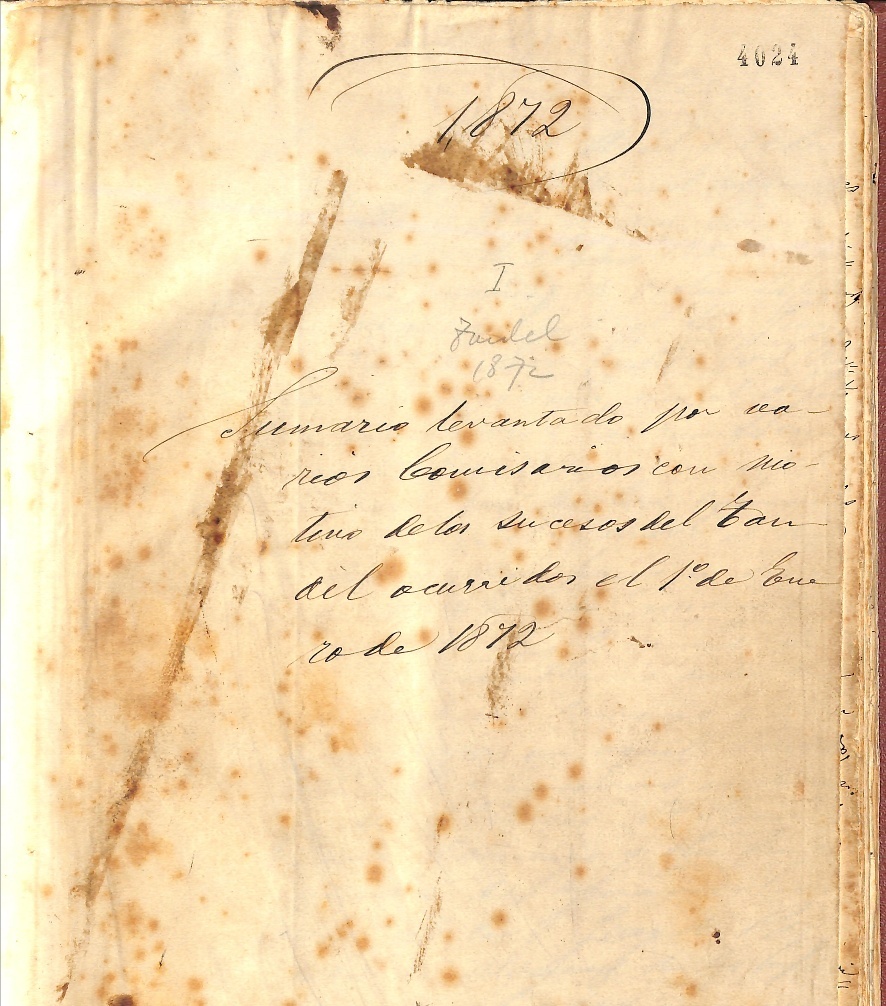 4024
1872
I
Tandil
1872
Sumario levantado por va-
rios Comisarios con mo-
tivo de los sucesos del Tan
dil ocurridos el 1º de Ene
ro de 1872